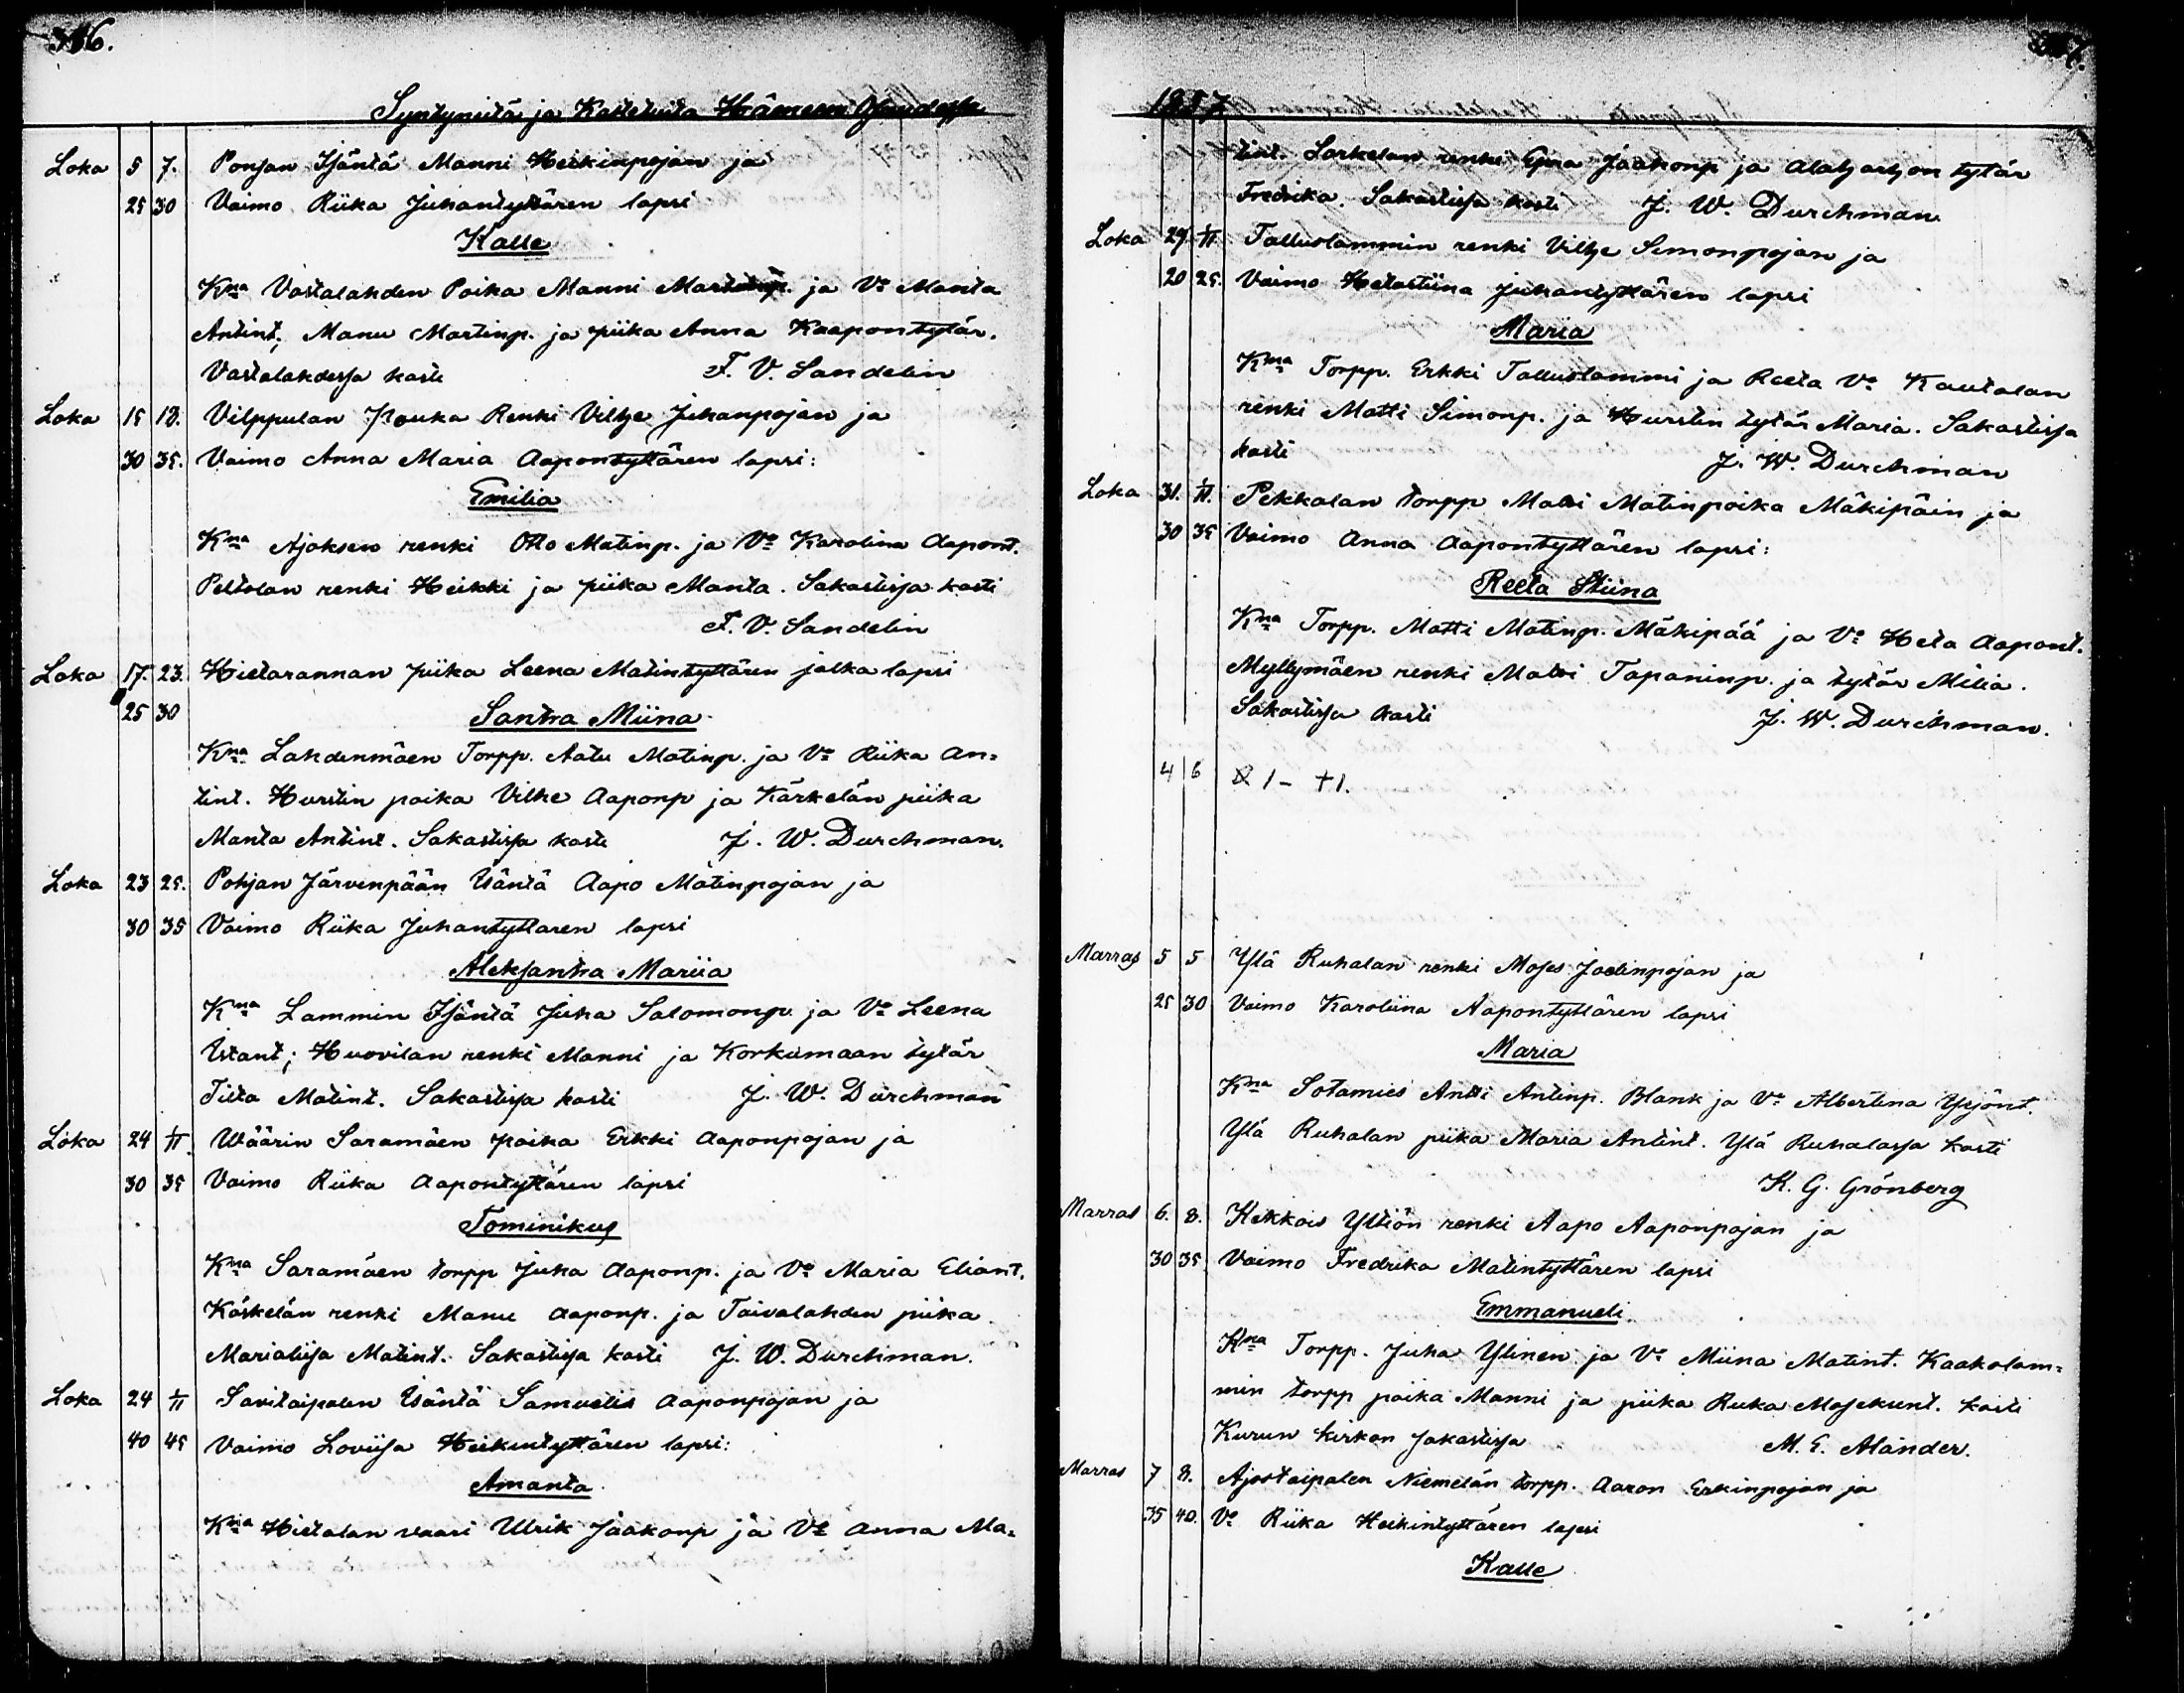 Syntyneitä ja Kastetuita
Loka 5 7. Pohjan Isäntä Manni Heikinpojan ja
25 30 Vaimo Riika Juhantyttären lapsi
Kalle
Kna Vastalahden Poika Manni ja Vo Manta
Antint; Manu Martinp. ja piika Anna Kaapontytär.
Vastalahdessa kasti F. V. Sandelin
Loka 15 18. Vilppulan Renki Vilhe Juhanpojan ja
30 35. Vaimo Anna Maria Aapontyttären lapsi:
Emilia
Kna Ajoksen renki Otto Matinp. ja Vo Karolina Aapont.
Peltolan renki Heikki ja piika Manta. Sakastissa kasti
F. V. Sandelin
Loka 17. 23. Hietarannan piika Leena Matintyttären jalka lapsi
25 30 Santra Miina
Kna Lahdenmäen Torpp. Aatu Matinp. ja Vo Riika An=
tint. Hurstin poika Vilhe Aaponp ja Kärkelän piika
Manta Antint. Sakastissa kasti J. W. Durchman.
Loka 23 25. Pohjan Järvenpään Isäntä Aapo Matinpojan ja
30 35 Vaimo Riika Juhantyttaren lapsi
Aleksantra Mariia
Kna Lammin Isäntä Juha Salomonp. ja Vo Leena
; Huovilan renki Manni ja Korkumaan tytär
Tiita Matint. Sakastissa kasti J. W. Durchman
Loka 24 1/11. Wäärin Saramäen poika Erkki Aaponpojan ja
30 35 Vaimo Riika Aapontyttären lapsi
Tominikus
Kna Saramäen torpp Juha Aaponp. ja Vo Maria Eliant.
Käskelän renki Manu Aaponp. ja Taivalahden piika
Marialiisa Matint. Sakastissa kasti J. W. Durchman.
Loka 24 1/11 Savitaipalen Isäntä Samuelis Aaponpojan ja
40 45 Vaimo Loviisa Heikintyttären lapsi:
Amanta
Kna Hietalan vaari Ulrik Jaakonp ja Vo Anna Ma=
1857
tint. Sorkelan renki Jaakonp ja Alaharhon tytär
Fredrika. Sakastissa kasti J. W. Durchman.
Loka 29 1/11 Talluslammin renki Vilhe Simonpojan ja
20 25. Vaimo Hetastiina Juhantyttären lapsi
Maria
Kna Torpp. Erkki Talluslammi ja Reeta Vo Kautalan
renki Matti Simonp. ja Hurstin tytär Maria. Sakastissa
kasti J. W. Durchman
Loka 31. 1/11. Pekkalan torpp Matti Matinpoika Mäkipäin ja
30 35 Vaimo Anna Aapontyttären lapsi:
Reeta Stiina
Kna Torpp. Matti Matinp. Mäkipää ja Vo Heta Aapont.
Myllymäen renki Matti Tapaninp. ja tytär Milia.
Sakastissa kasti J. W. Durchman.
4 6 1 - +1.
Marras 5 5 Ylä Ruhalan renki Moses Joelinpojan ja
25 30 Vaimo Karoliina Aapontyttären lapsi
Maria
Kna Sotamies Antti Antinp. Blank ja Vo Albertina Yrjönt.
Ylä Ruhalan piika Maria Antint. Ylä Ruhalassa kasti
K. G. Grönberg
Marras 6. 8. Kekkois Yltiön renki Aapo Aaponpojan ja
30 35 Vaimo Fredrika Matintyttären lapsi
Emmanueli
Kna Torpp. Juha Ylinen ja Vo Miina Matint. Kaakolam=
min torpp poika Manni ja piika Ruka Mosekunt. kasti
Kurun kirkon sakastissa M. E. Alander.
Marras 7 8. Ajostaipalen Niemelän torpp. Aaron Erkinpojan ja
35 40. Vo Riika Heikintyttären lapsi
Kalle